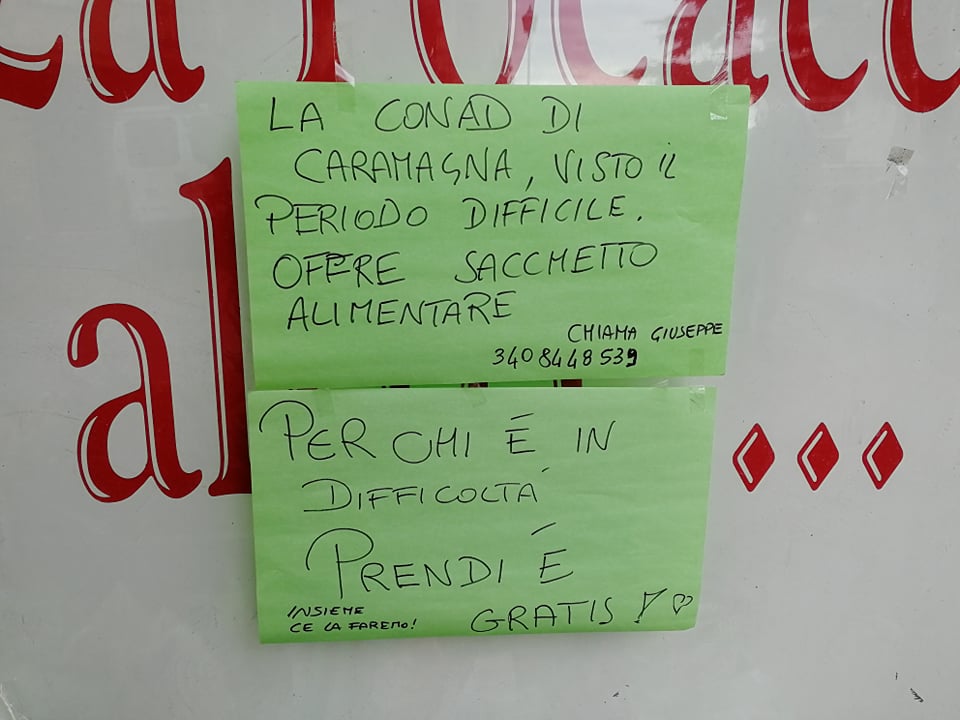 LA CONAD DI
CARAMAGNA, VISTO IL
PERIODO DIFFICILE.
OFFRE SACCHETTO
ALIMENTARE
CHIAMA GIUSEPPE
340 8448539
PER CHI É IN
DIFFICOLTÁ
PRENDI É
GRATIS!
INSIEME
CE LA FAREMO!